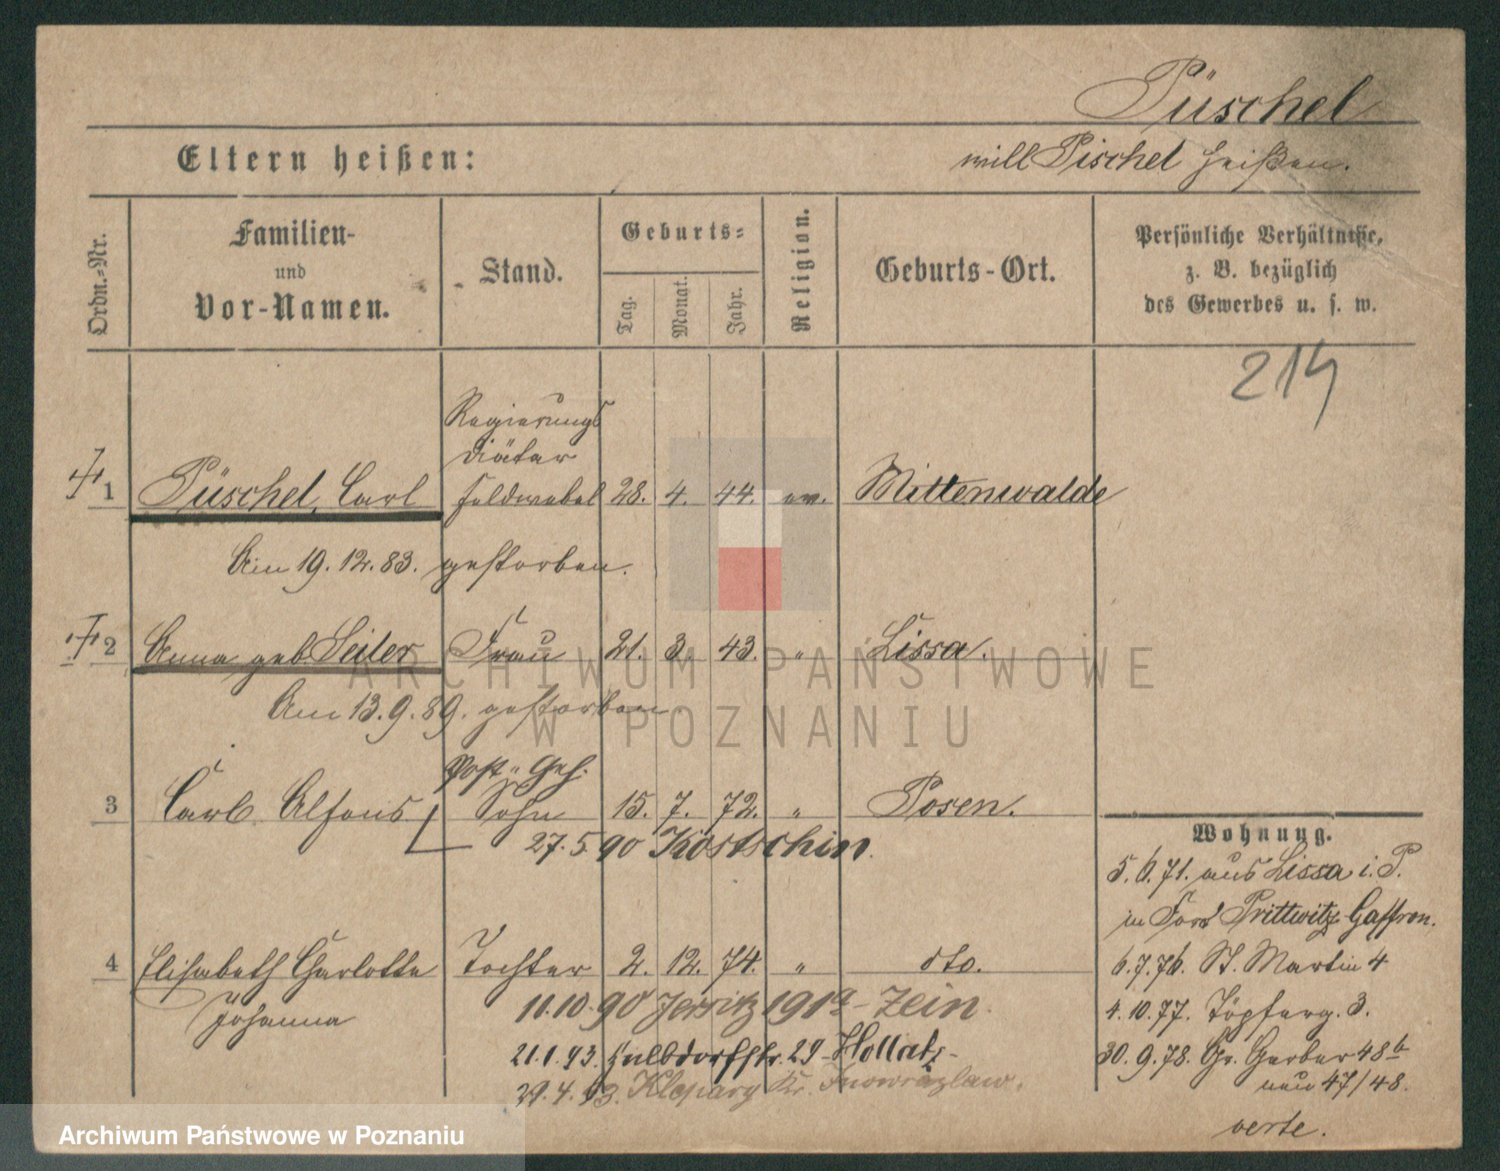 Püschel
Eltern heißen:
will Pischel heißen.
Ordn.-Nr.
Familien-
und
Vor-Namen.
Stand.
Geburts-
Tag.
Monat.
Jahr.
Religion.
Geburts-Ort.
Persönliche Verhältnisse,
z. B. bezüglich
des Gewerbes u. s. w.
214
Regierungs
Diätar
1 Püschel, Carl Feldwebel 28. 4. 44. ev. Mittenwalde
Am 19. 12. 83. gestorben.
2 Anna geb Seiler Frau 21. 3. 43. " Lissa.
Am 13. 9. 89. gestorben
Post-Geh.
3 Carl Alfons Sohn 15. 7. 72. " Posen.
27. 5. 90 Kostschin.
4 Elisabeth Charlotte Tochter 2. 12. 74. " dto.
Johanna
11. 10. 90 Jersitz - Zein.
21. 1. 93. 29 Hollatz-
29. 4. 93. Kr. Inowrazlaw.
Wohnung.
5. 6. 71. aus Lissa i. P.
in Fort Prittwitz Gaffron.
6. 7. 76. St. Martin 4
4. 10. 77. Töpferg. 3.
30. 9. 78. Gr. Gerber 48b
neu 47/48.
verte.
ARCHIWUM PAŃSTWOWE
W POZNANIU
Archiwum Państwowe w Poznaniu